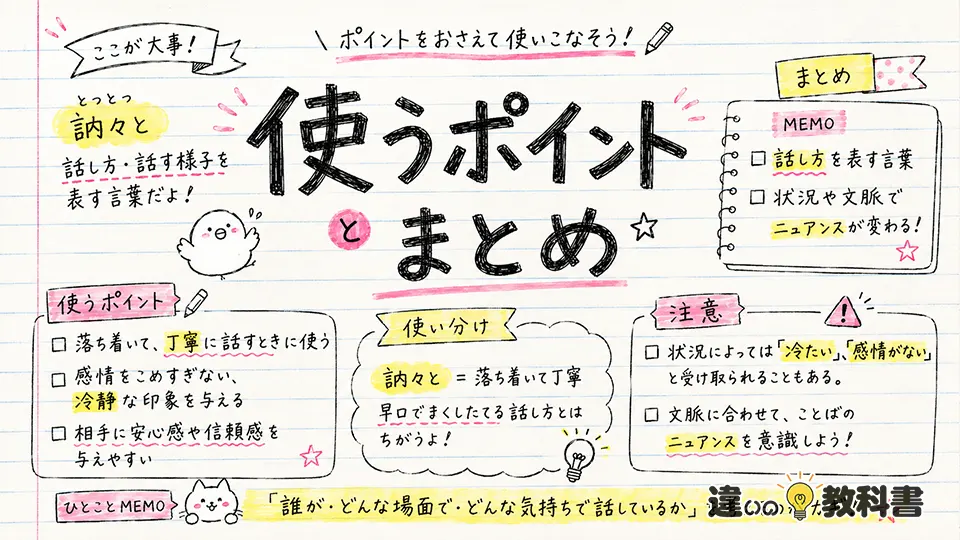 ここが大事!
ポイントをおさえて使いこなそう!
とつとつ
訥々と
話し方・話す様子を
表す言葉だよ!
使うポイント
と
まとめ
まとめ
MEMO
話し方を表す言葉
状況や文脈で
ニュアンスが変わる!
使うポイント
落ち着いて、丁寧に話すときに使う
感情をこめすぎない、
冷静な印象を与える
相手に安心感や信頼感を
与えやすい
使い分け
訥々と = 落ち着いて丁寧
早口でまくしたてる話し方とは
ちがうよ!
注意
状況によっては「冷たい」、「感情がない」
と受け取られることもある。
文脈に合わせて、ことばの
ニュアンスを意識しよう!
ひとことMEMO
「誰が・どんな場面で・どんな気持ちで話しているか」
違いの教科書